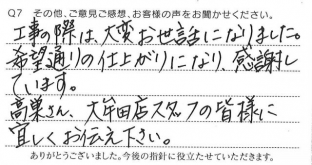 Q7 その他、ご意見ご感想、お客様の声をお聞かせください。
工事の際は大変お世話になりました。
希望通りの仕上がりになり、感謝し
ています。
高巣さん、大牟田店スタッフの皆様に
宜しくお伝え下さい。
ありがとうございました。今後の指針に役立たせていただきます。